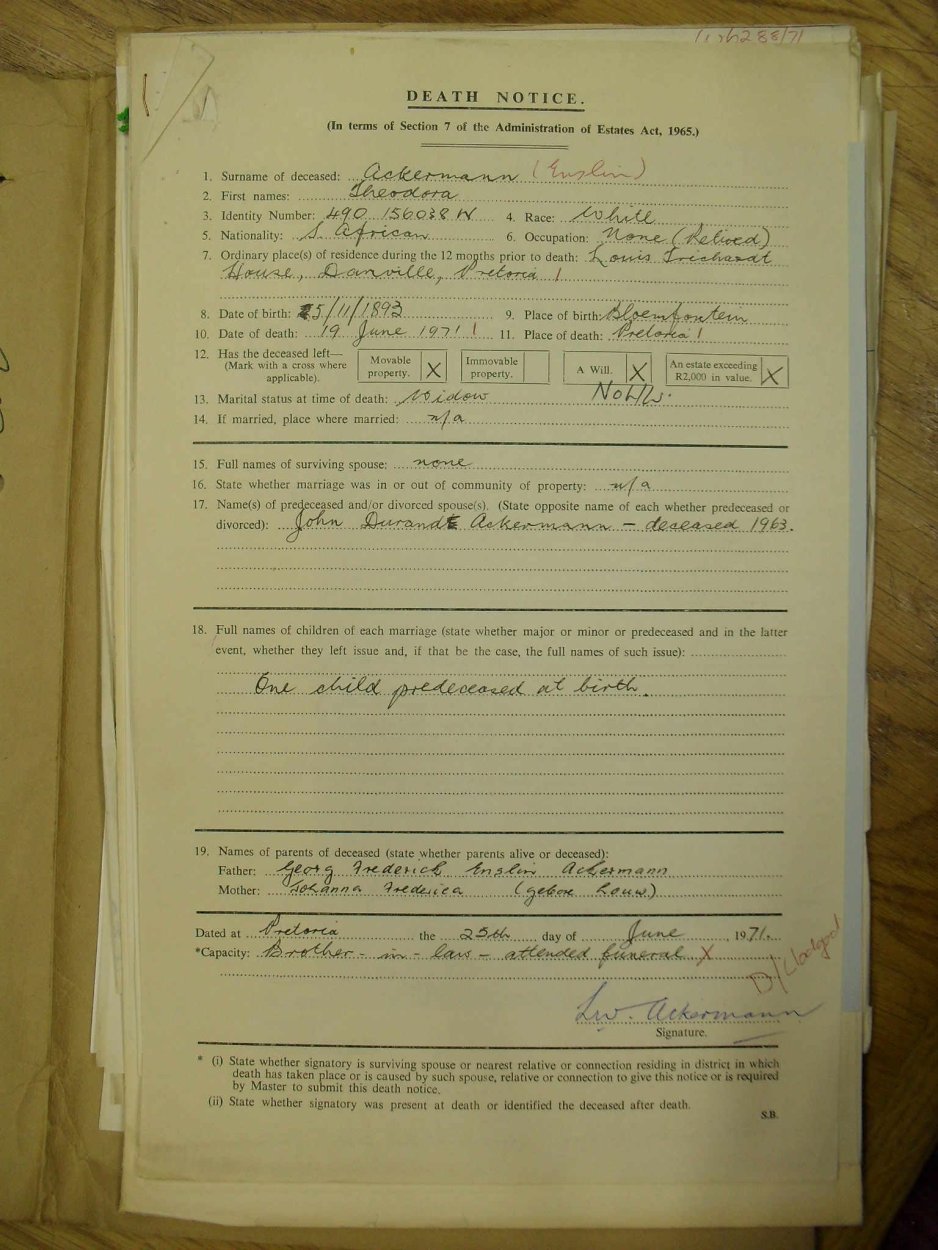 288/71
DEATH NOTICE.
(In terms of Section 7 of the Administration of Estates Act, 1965.)
1. Surname of deceased: Ackermann (Enslin)
2. First names: Theodora
3. Identity Number: 490 156038 W 4. Race: White
5. Nationality: S. African 6. Occupation: None (Retired)
7. Ordinary place(s) of residence during the 12 months prior to death: Louis Trichardt
House, Danville, Pretoria !
8. Date of birth: 25/11/1893 9. Place of birth: Bloemfontein
10. Date of death: 19 June 1971 ! 11. Place of death: Pretoria !
12. Has the deceased left—
(Mark with a cross where
applicable).
Movable
property. X
Immovable
property.
A Will. X
An estate exceeding
R2,000 in value. X
13. Marital status at time of death: Widow
14. If married, place where married: n/a
15. Full names of surviving spouse: none
16. State whether marriage was in or out of community of property: n/a
17. Name(s) of predeceased and/or divorced spouse(s). (State opposite name of each whether predeceased or
divorced): John Durandt Ackermann – deceased 1963.
18. Full names of children of each marriage (state whether major or minor or predeceased and in the latter
event, whether they left issue and, if that be the case, the full names of such issue):
One child predeceased at birth.
19. Names of parents of deceased (state whether parents alive or deceased):
Father: Georg Frederick Enslin Ackermann
Mother: Johanna Frederica (gebore Louw)
Dated at Pretoria the 25th day of June, 1971.
*Capacity: Brother-in-law – attended funeral X
Ackermann
Signature.
* (i) State whether signatory is surviving spouse or nearest relative or connection residing in district in which
death has taken place or is caused by such spouse, relative or connection to give this notice or is required
by Master to submit this death notice.
(ii) State whether signatory was present at death or identified the deceased after death.
S.B.